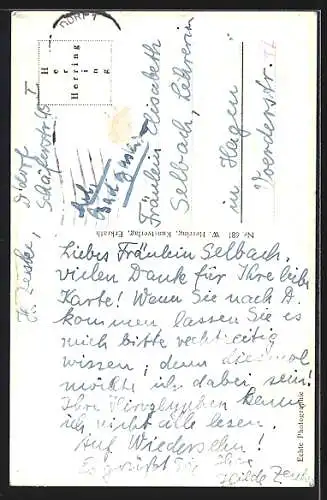 Liebes Fräulein Selbach,
vielen Dank für Ihre liebe
Karte! Wenn Sie nach D.
kommen lassen Sie es
mich bitte rechtzeitig
wissen, denn diesmal
möchte ich dabei sein!
Ihre kenne
ich nicht alle lesen.
Auf Wiedersehen!
Es grüßt Sie Ihre
Hilde
Fräulein Elisabeth
Selbach, Lehrerin
in Hagen
Voerderstr.
H.
Schäferstr.
He
ri
Herring
ng
Nr. 681 W. Herring, Kunstverlag, Erkrath
Echte Photographie